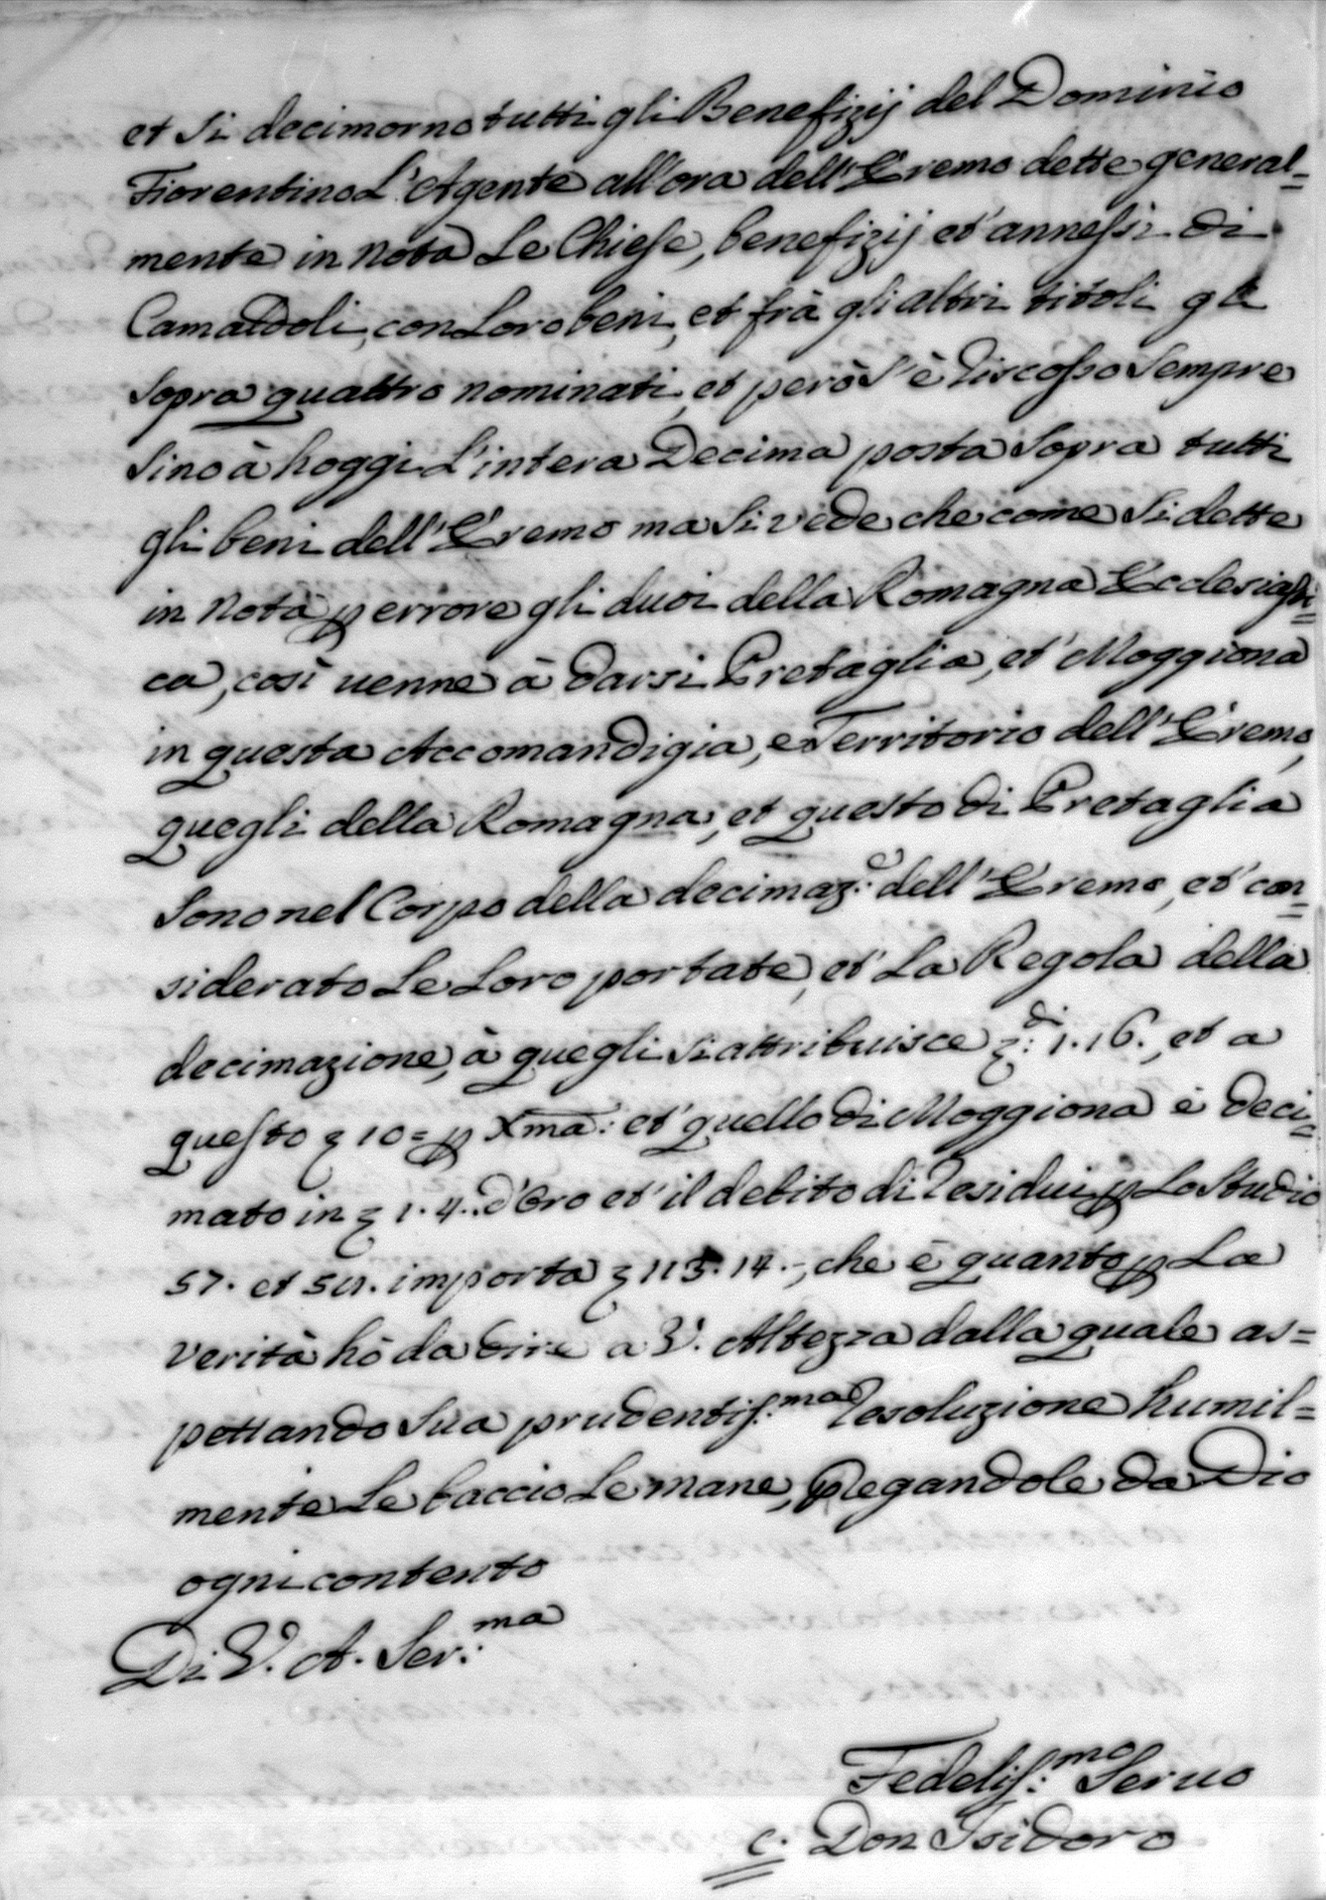 et si decimorno tutti gli Benefizij del Dominio
Fiorentino L'Agente all'ora dell'Eremo dette general=
mente in nota Le Chiese, benefizij et annessi di
Camaldoli, con Loro beni, et frà gli altri titoli gli
sopra quattro nominati, et però s'è riscosso sempre
sino à hoggi L'intera Decima posta sopra tutti
gli beni dell'Eremo ma si vede che come si dette
in nota p errore gli duoi della Romagna Ecclesiasti=
ca, così uenne à darsi Pretaglia, et Moggiona
in questa Accomandigia, e Territorio dell'Eremo,
quegli della Romagna, et questo di Pretaglia
sono nel Corpo della decimaz:e dell'Eremo, et con=
siderato Le Loro portate, et La Regola della
decimazione, à quegli si attribuisce di 1.16., et a
questo 10= p Xma: et quello di Moggiona è deci=
mato in 1.4. d'Oro et il debito di residui p Lo Studio
57. et 58. importa 113.14.-, che è quanto p La
verità hò da dire a V. Altezza dalla quale as=
pettando sua prudentiss:ma resoluzione humil=
mente Le baccio Le mane, Pregandole da Dio
ogni contento
Di V. A. Ser:ma
Fedeliss:mo Seruo
C. Don Isidoro